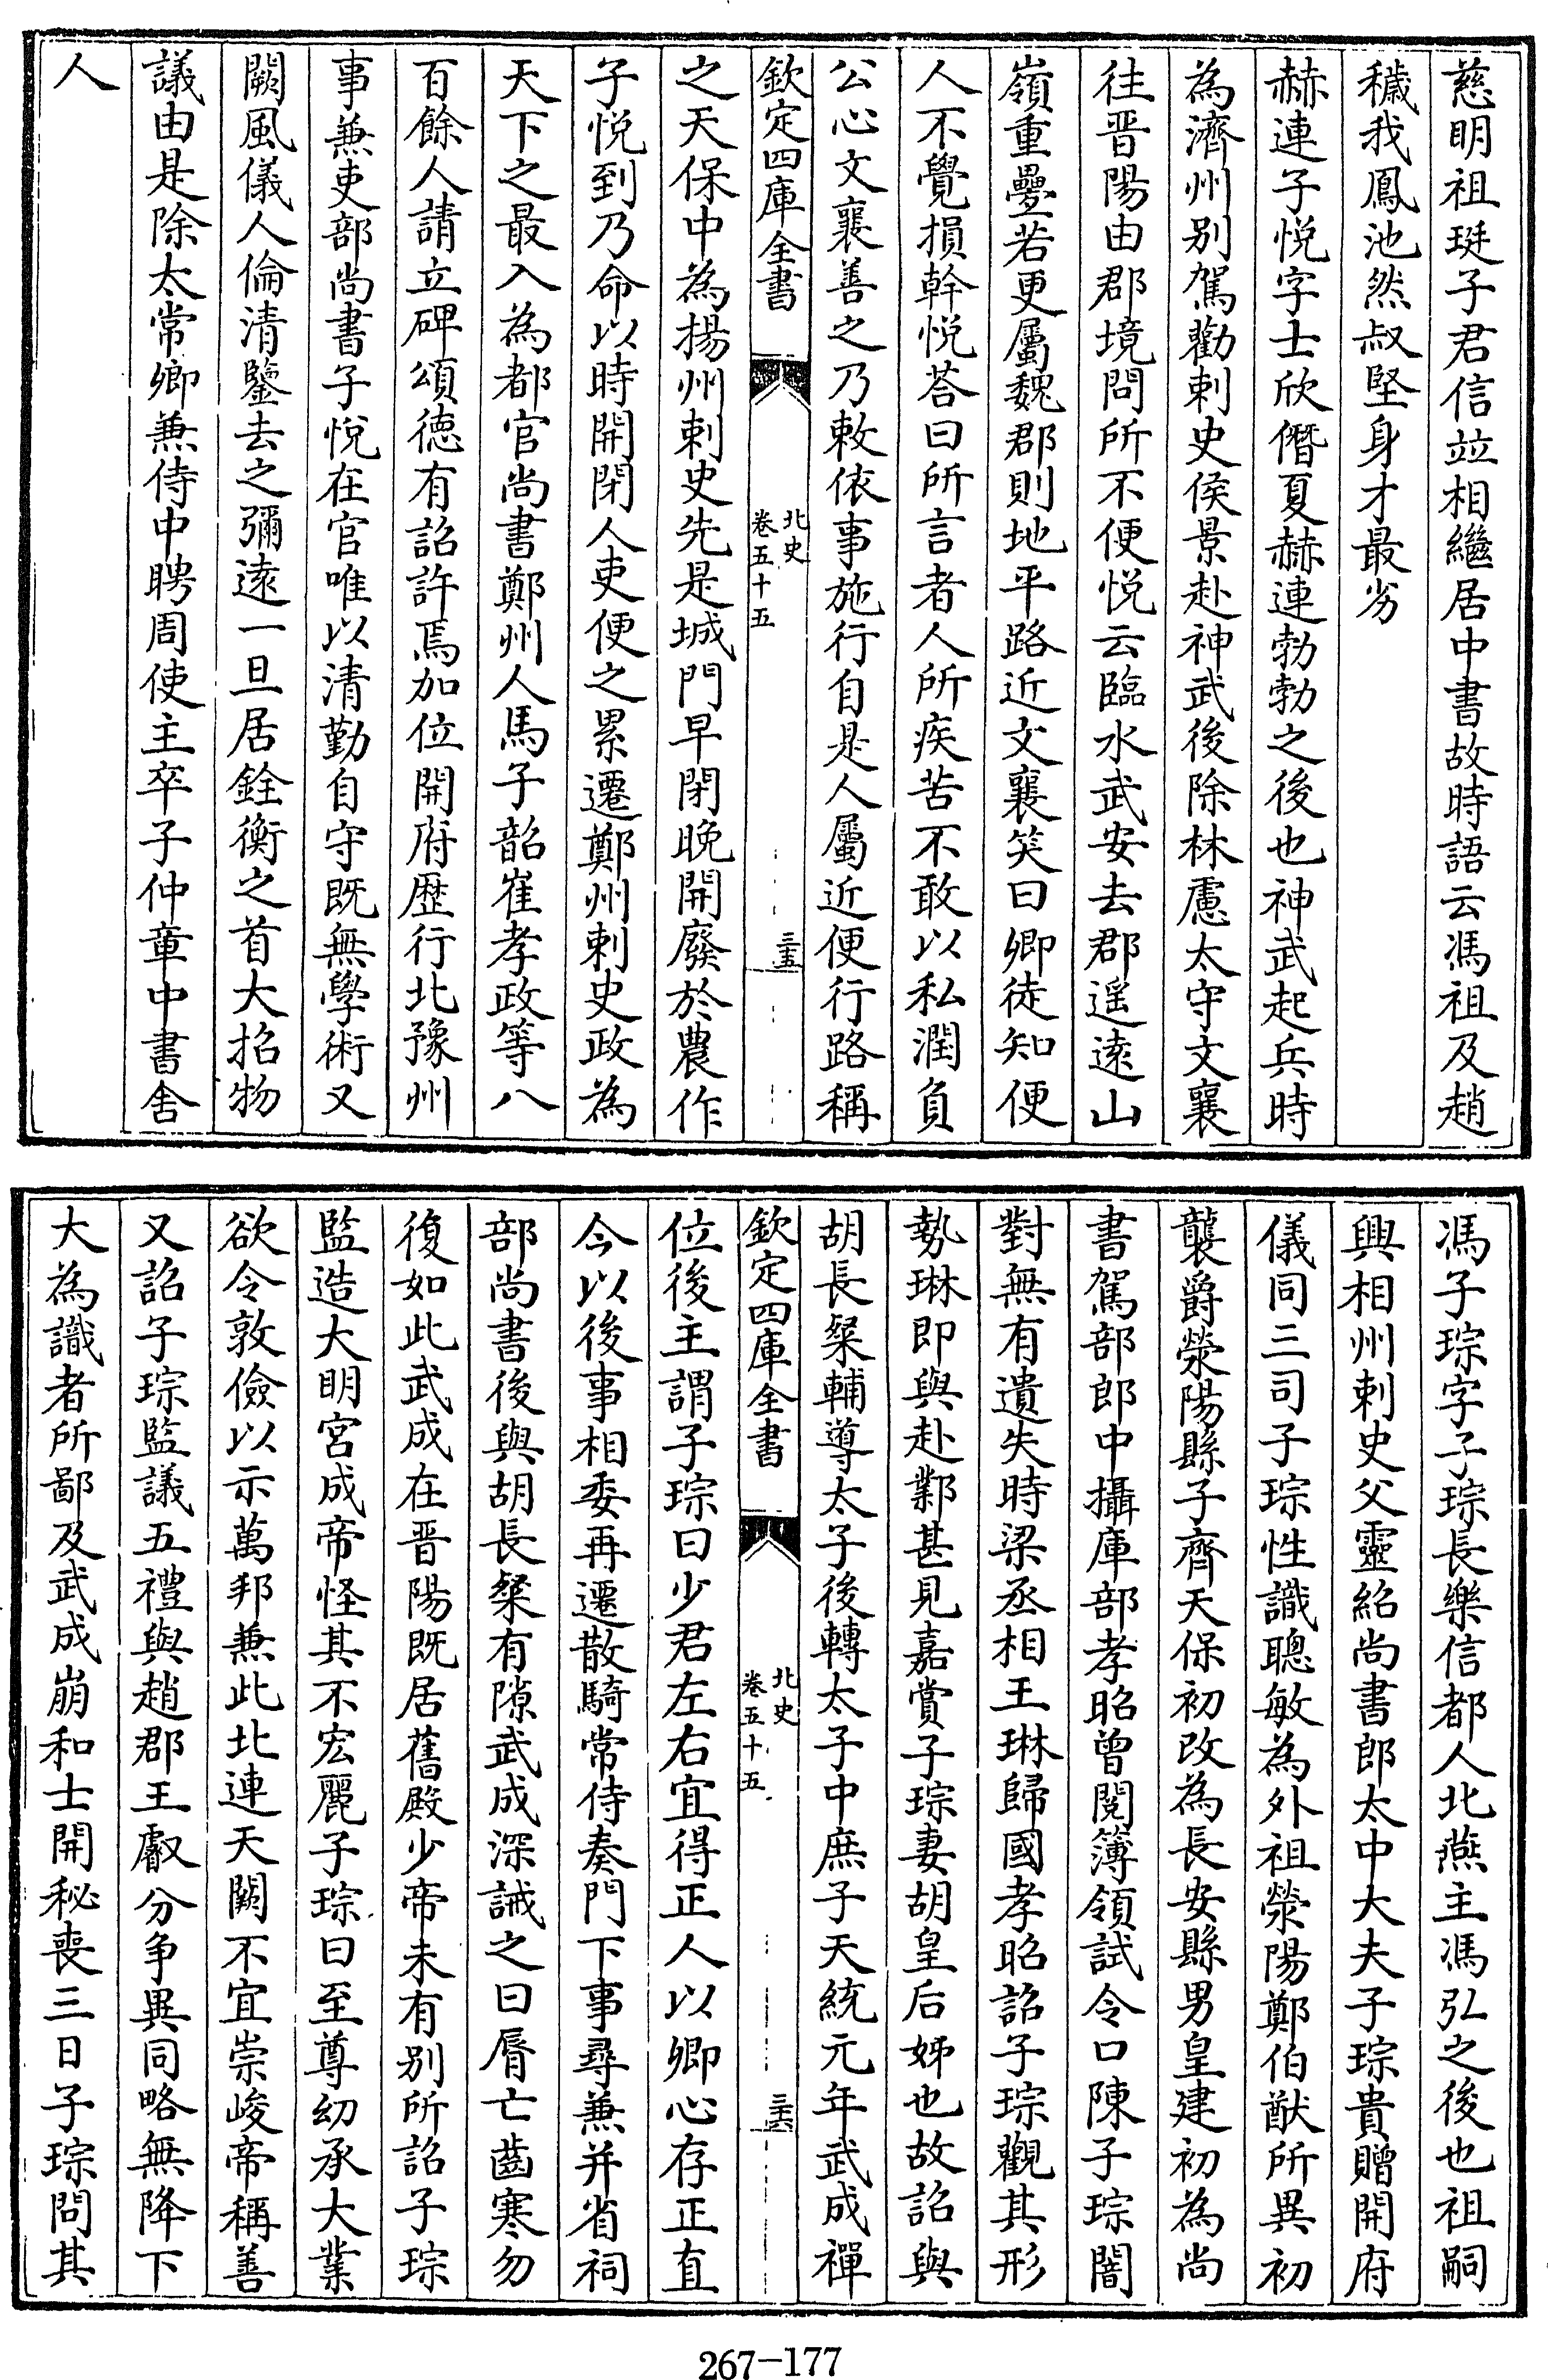 慈明祖珽子君信竝相繼居中書故時語云馮祖及趙
穢我鳳池然叔堅身才最劣
赫連子悦字士欣僭夏赫連勃勃之後也神武起兵時
為濟州別駕勸刺史侯景赴神武後除林慮太守文襄
往晋陽由郡境問所不便悦云臨水武安去郡遥逺山
嶺重疊若更屬魏郡則地平路近文襄笑曰卿徒知便
人不覺損幹悦荅曰所言者人所疾苦不敢以私潤負
公心文襄善之乃敕依事施行自是人屬近便行路稱
欽定四庫全書
北史
卷五十五
三五
之天保中為揚州刺史先是城門早閉晚開廢於農作
子悦到乃命以時開閉人吏便之累遷鄭州刺史政為
天下之最入為都官尚書鄭州人馬子韶崔孝政等八
百餘人請立碑頌徳有詔許焉加位開府歴行北豫州
事兼吏部尚書子悅在官唯以清勤自守既無學術又
闕風儀人倫清鑒去之彌逺一旦居銓衡之首大招物
議由是除太常卿兼侍中聘周使主卒子仲章中書舍
人
馮子琮字子琮長樂信都人北燕主馮弘之後也祖嗣
興相州刺史父靈紹尚書郎太中大夫子琮貴贈開府
儀同三司子琮性識聰敏為外祖滎陽鄭伯猷所異初
襲爵滎陽縣子齊天保初改為長安縣男皇建初為尚
書駕部郎中攝庫部孝昭曾閱簿領試令口陳子琮闇
對無有遺失時梁丞相王琳歸國孝昭詔子琮觀其形
勢琳即與赴鄴甚見嘉賞子琮妻胡皇后姊也故詔與
胡長粲輔導太子後轉太子中庶子天統元年武成禪
欽定四庫全書
北史
卷五十五
三六
位後主謂子琮曰少君左右宜得正人以卿心存正直
今以後事相委再遷散騎常侍奏門下事尋兼并省祠
部尚書後與胡長粲有隙武成深誡之曰脣亡齒寒勿
復如此武成在晋陽既居舊殿少帝未有別所詔子琮
監造大明宮成帝怪其不宏麗子琮曰至尊幼承大業
欲令敦儉以示萬邦兼此北連天闕不宜崇峻帝稱善
又詔子琮監議五禮與趙郡王叡分争異同略無降下
大為識者所鄙及武成崩和士開秘喪三日子琮問其
267-177